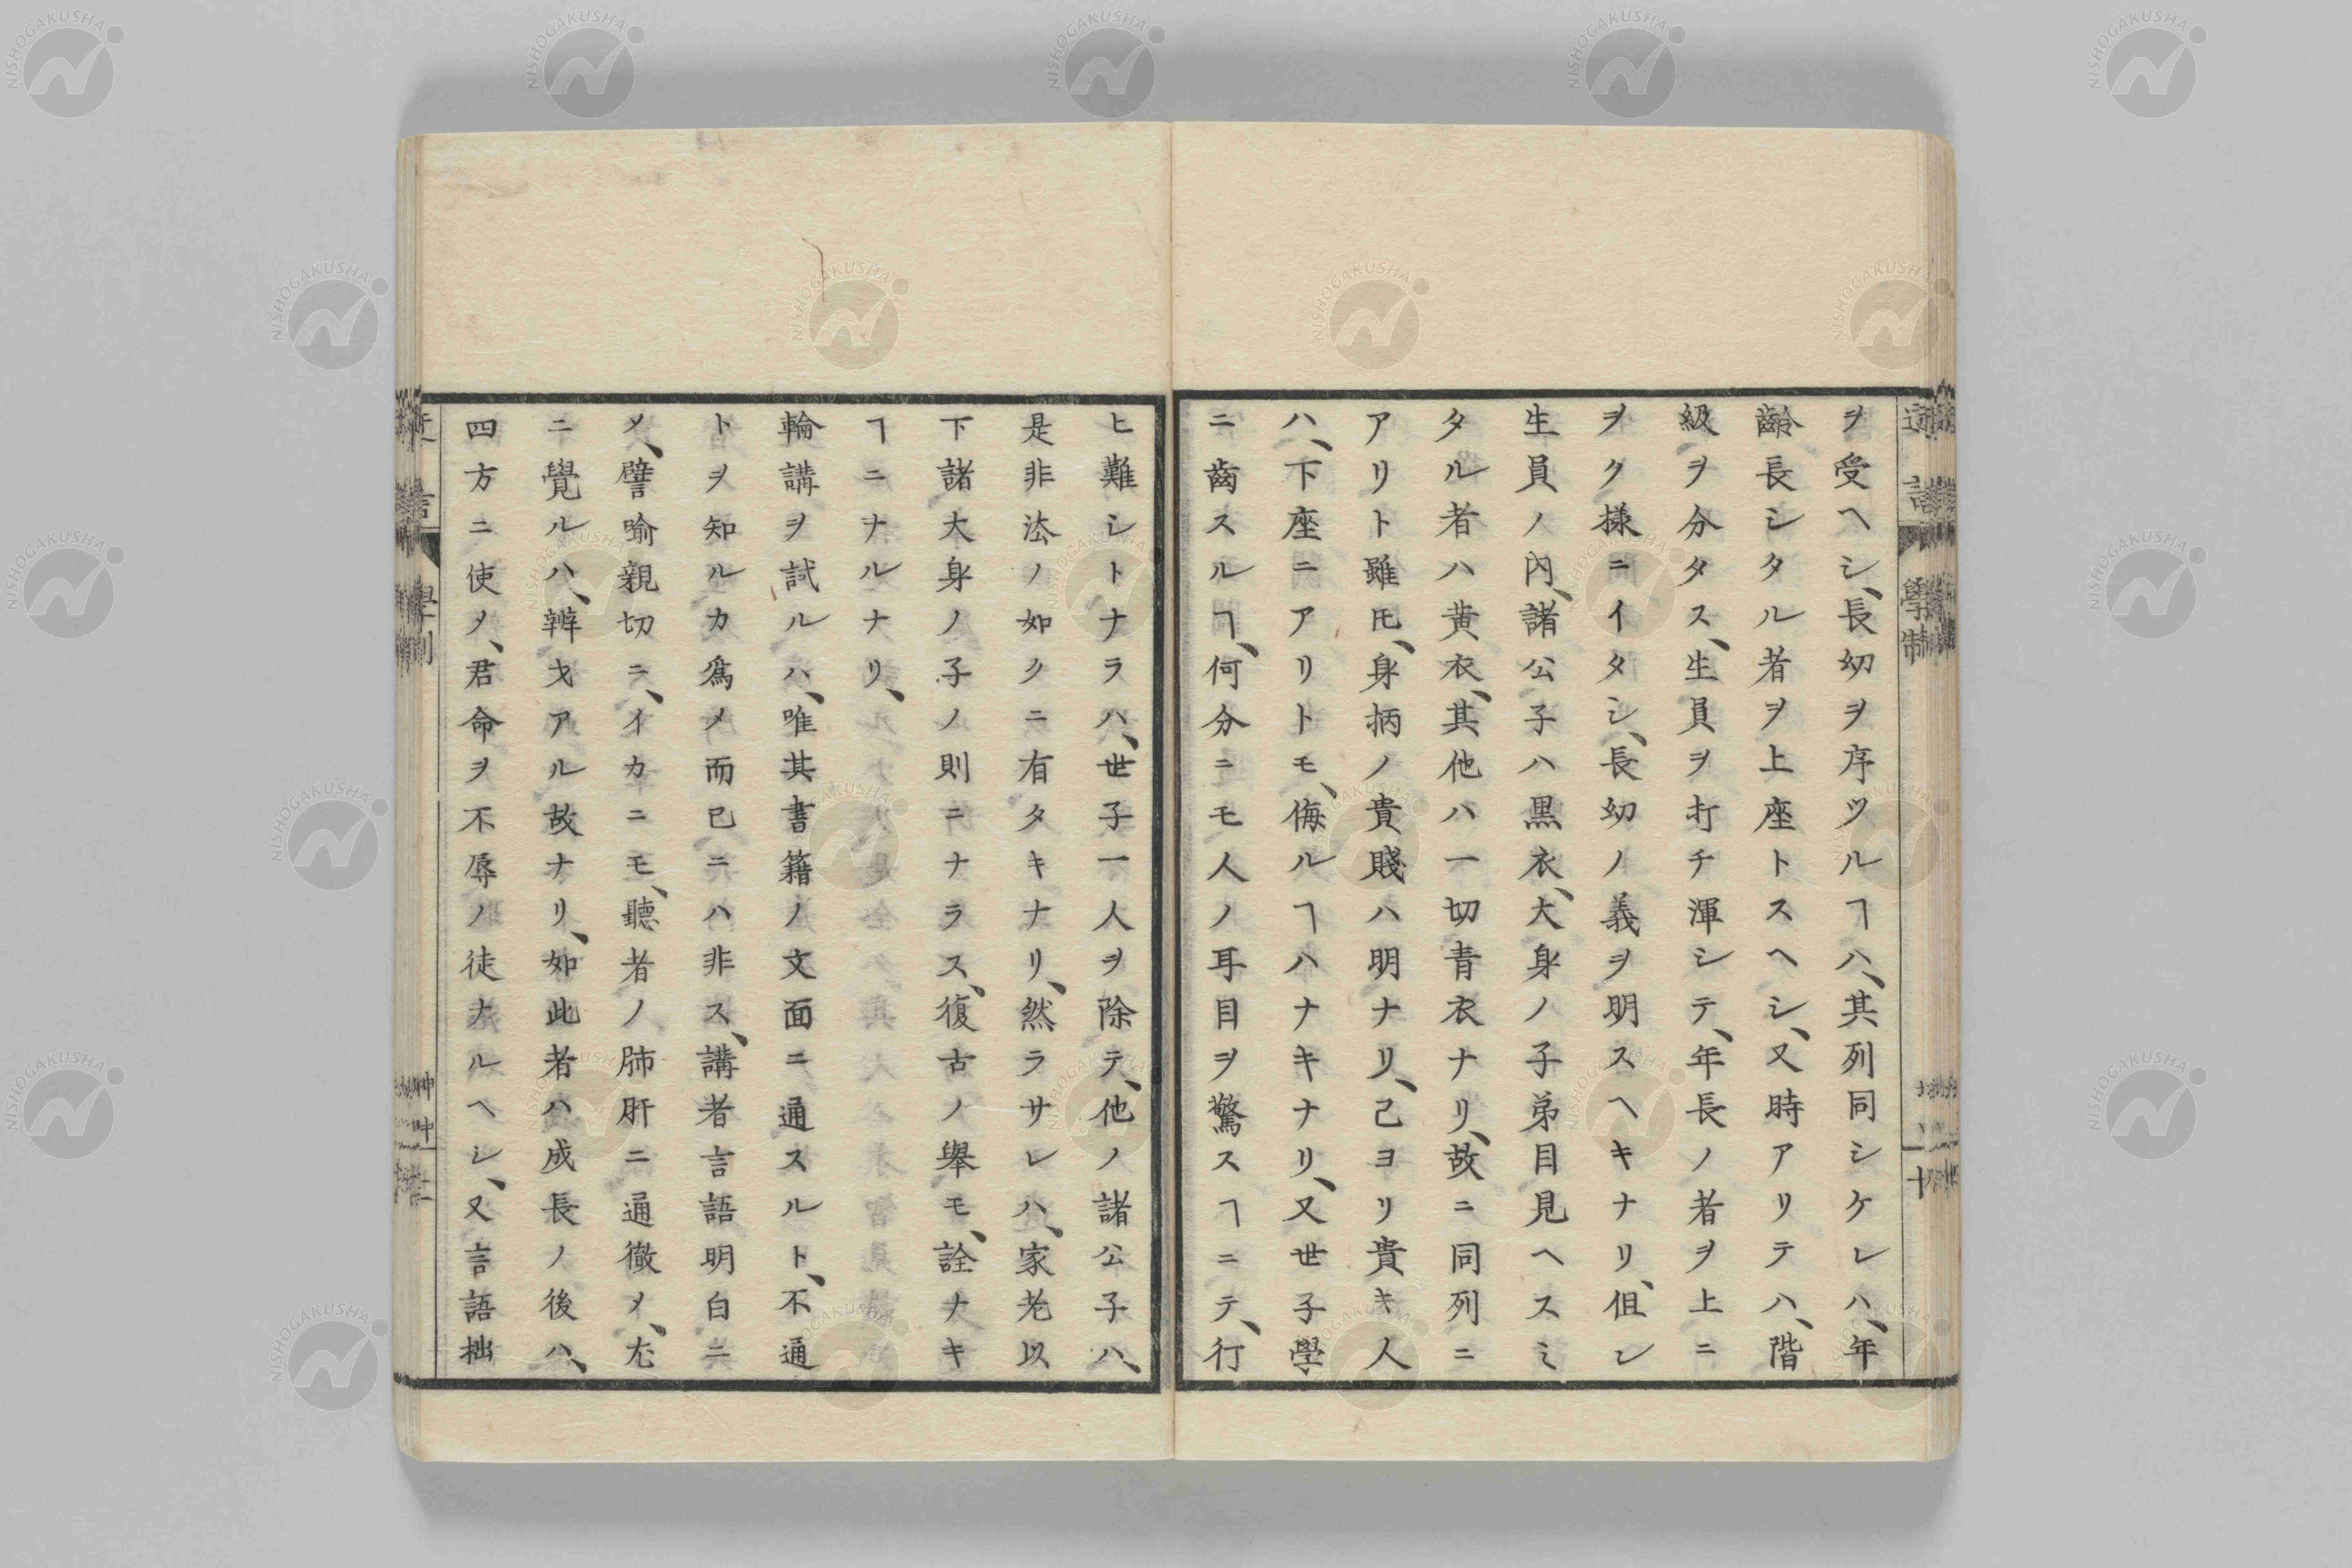 ヲ受ヘシ、長幼ヲ序ツルヿハ、其列同シケレハ、年
齡長シタル者ヲ上座トスヘシ、又時アリテハ、階
級ヲ分タス、生員ヲ打チ渾シテ、年長ノ者ヲ上ニ
ヲク様ニイタシ、長幼ノ義ヲ明スヘキナリ、伹シ
生員ノ內、諸公子ハ黒衣、大身ノ子弟目見ヘスミ
タル者ハ黄衣、其他ハ一切青衣ナリ、故ニ同列ニ
アリト雖𪜈、身柄ノ貴賤ハ明ナリ、己ヨリ貴キ人
ハ、下座ニアリトモ、侮ルヿハナキナリ、又世子學
ニ齒スルヿ、何分ニモ人ノ耳目ヲ驚スヿニテ、行
ヒ難シトナラハ、世子一人ヲ除テ、他ノ諸公子ハ、
是非法ノ如クニ有タキナリ、然ラサレハ、家老以
下諸大身ノ子ノ則ニナラス、復古ノ舉モ、詮ナキ
ヿニナルナリ、
輪講ヲ試ルハ、唯其書籍ノ文面ニ通スルト、不通
トヲ知ルカ爲メ而已ニハ非ス、講者言語明白ニ
〆、譬喻親切ニ、イカニモ、聽者ノ肺肝ニ通徹〆、尤
ニ覺ルハ、辨才アル故ナリ、如此者ハ成長ノ後ハ、
四方ニ使〆、君命ヲ不辱ノ徒ナルヘシ、又言語拙
學制
十